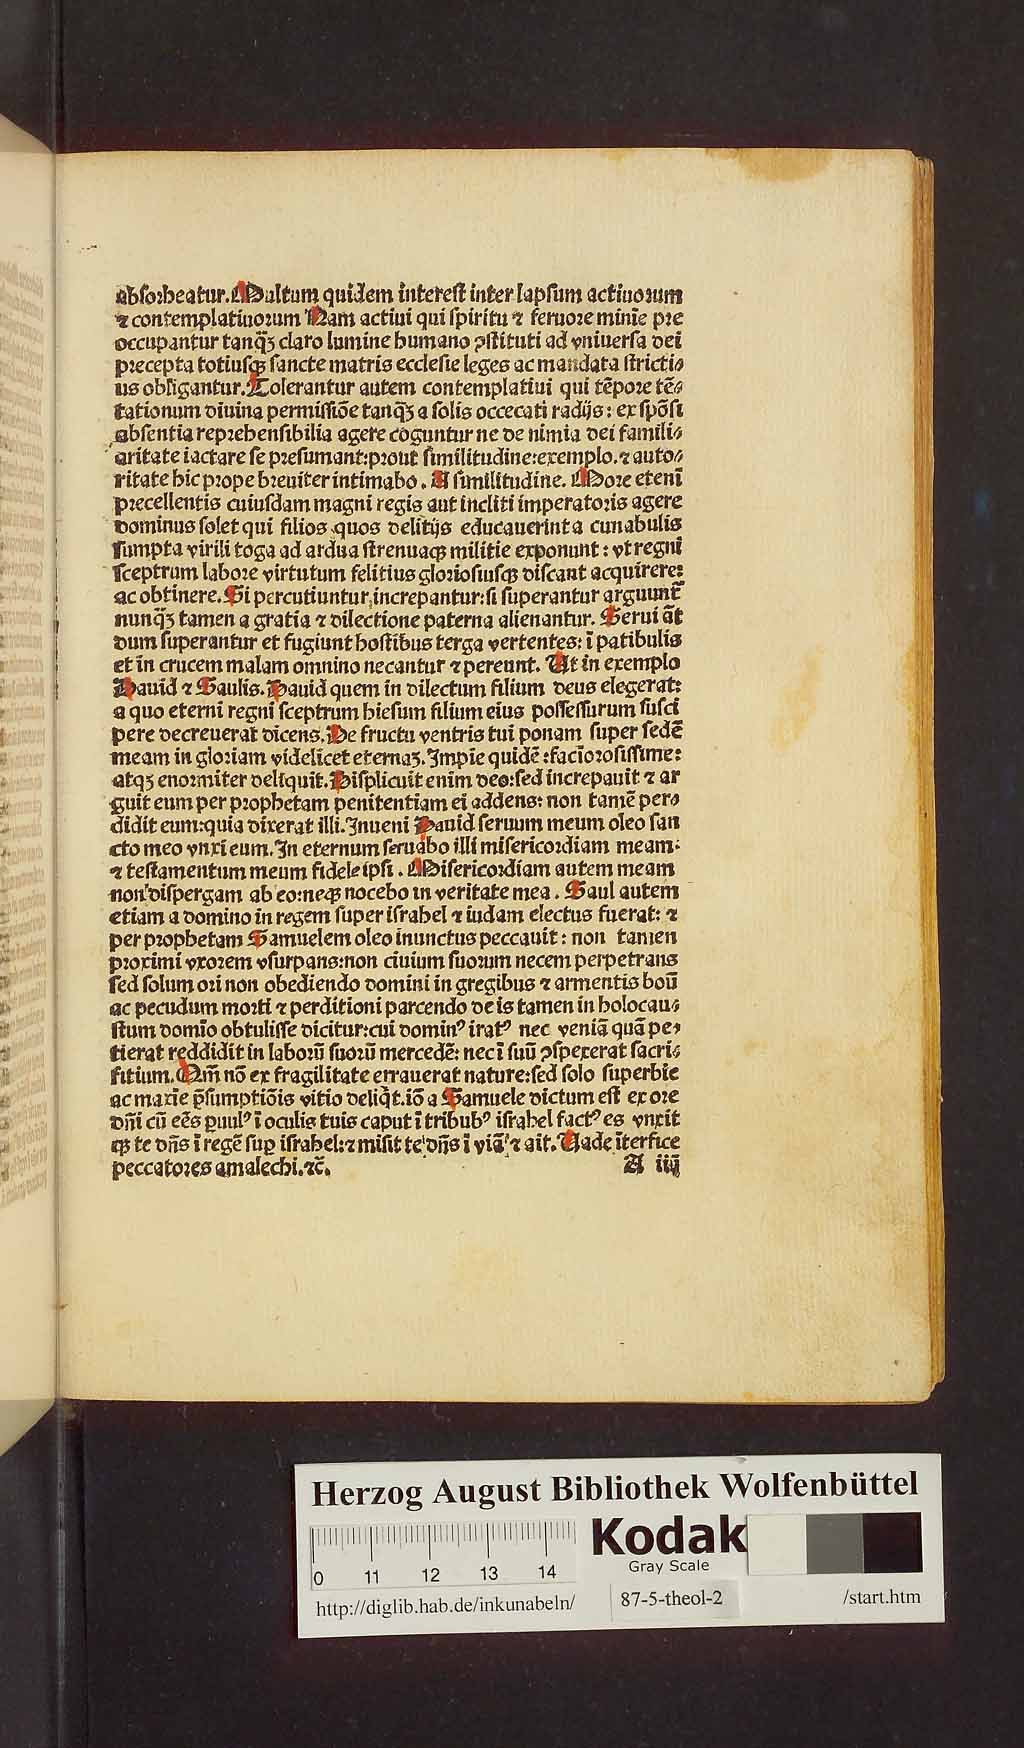 absorbeatur. Multum quidem interest inter lapsum actiuorum
⁊ contemplatiuorum Nam actiui qui spiritu ⁊ feruore minīe pre
occupantur tanq̄ꝫ claro lumine humano ꝯstituti ad vniuersa dei
precepta totiusqꝫ sancte matris ecclesie leges ac mandata stricti⸗
us obligantur. Tolerantur autem contemplatiui qui tēpore tē⸗
tationum diuina permissiōe tanq̄ꝫ a solis occecati radijs: ex spōsi
absentia reprehensibilia agere coguntur ne de nimia dei famili⸗
aritate iactare se presumant: prout similitudine: exemplo. ⁊ auto⸗
ritate hic prope breuiter intimabo. A similitudine. More etenī
precellentis cuiusdam magni regis aut incliti imperatoris agere
dominus solet qui filios quos delitijs educauerint a cunabulis
sumpta virili toga ad ardua strenuaqꝫ militie exponunt: vt regni
sceptrum labore virtutum felitius gloriosiusqꝫ discant acquirere:
ac obtinere. Si percutiuntur increpantur: si superantur arguunt̄
nunq̄ꝫ tamen a gratia ⁊ dilectione paterna alienantur. Serui āt
dum superantur et fugiunt hostibus terga vertentes: ī patibulis
et in crucem malam omnino necantur ⁊ pereunt. Ut in exemplo
Dauid ⁊ Saulis. Dauid quem in dilectum filium deus elegerat:
a quo eterni regni sceptrum hiesum filium eius possessurum susci
pere decreuerat dicens. De fructu ventris tui ponam super sedē
meam in gloriam videlicet eternaꝫ. Impie quidē: facīorosissime:
atqꝫ enormiter deliquit. Displicuit enim deo: sed increpauit ⁊ ar
guit eum per prophetam penitentiam ei addens: non tamē per⸗
didit eum: quia dixerat illi. Inueni Dauid seruum meum oleo san
cto meo vnxi eum. In eternum seruabo illi misericordiam meam:
⁊ testamentum meum fidele ipsi. Misericordiam autem meam
non dispergam ab eo: neqꝫ nocebo in veritate mea. Saul autem
etiam a domino in regem super israhel ⁊ iudam electus fuerat: ⁊
per prophetam Samuelem oleo inunctus peccauit: non tamen
proximi vxorem vsurpans: non ciuium suorum necem perpetrans
sed solum ori non obediendo domini in gregibus ⁊ armentis boū
ac pecudum morti ⁊ perditioni parcendo de is tamen in holocau⸗
stum domīo obtulisse dicitur: cui dominꝰ iratꝰ nec veniā quā pe⸗
tierat reddidit in laborū suorū mercedē: nec ī suū ꝯspexerat sacri⸗
fitium. Nm̄ nō ex fragilitate errauerat nature: sed solo superbie
ac maxīe p̄sumptiōis vitio deliq̄t. iō a Samuele dictum est ex ore
dn̄i cū eēs puulꝰ ī oculis tuis caput ī tribubꝰ israhel factꝰ es vnxit
qꝫ te dn̄s ī regē suꝑ israhel: ⁊ misit te dn̄s ī viā ⁊ ait. Uade īterfice
peccatores amalechi. ⁊c̄. A iiij
Herzog August Bibliothek Wolfenbüttel
Kodak
Gray Scale
0 11 12 13 14
http://diglib.hab.de/inkunabeln/ 87-5-theol-2 /start.htm